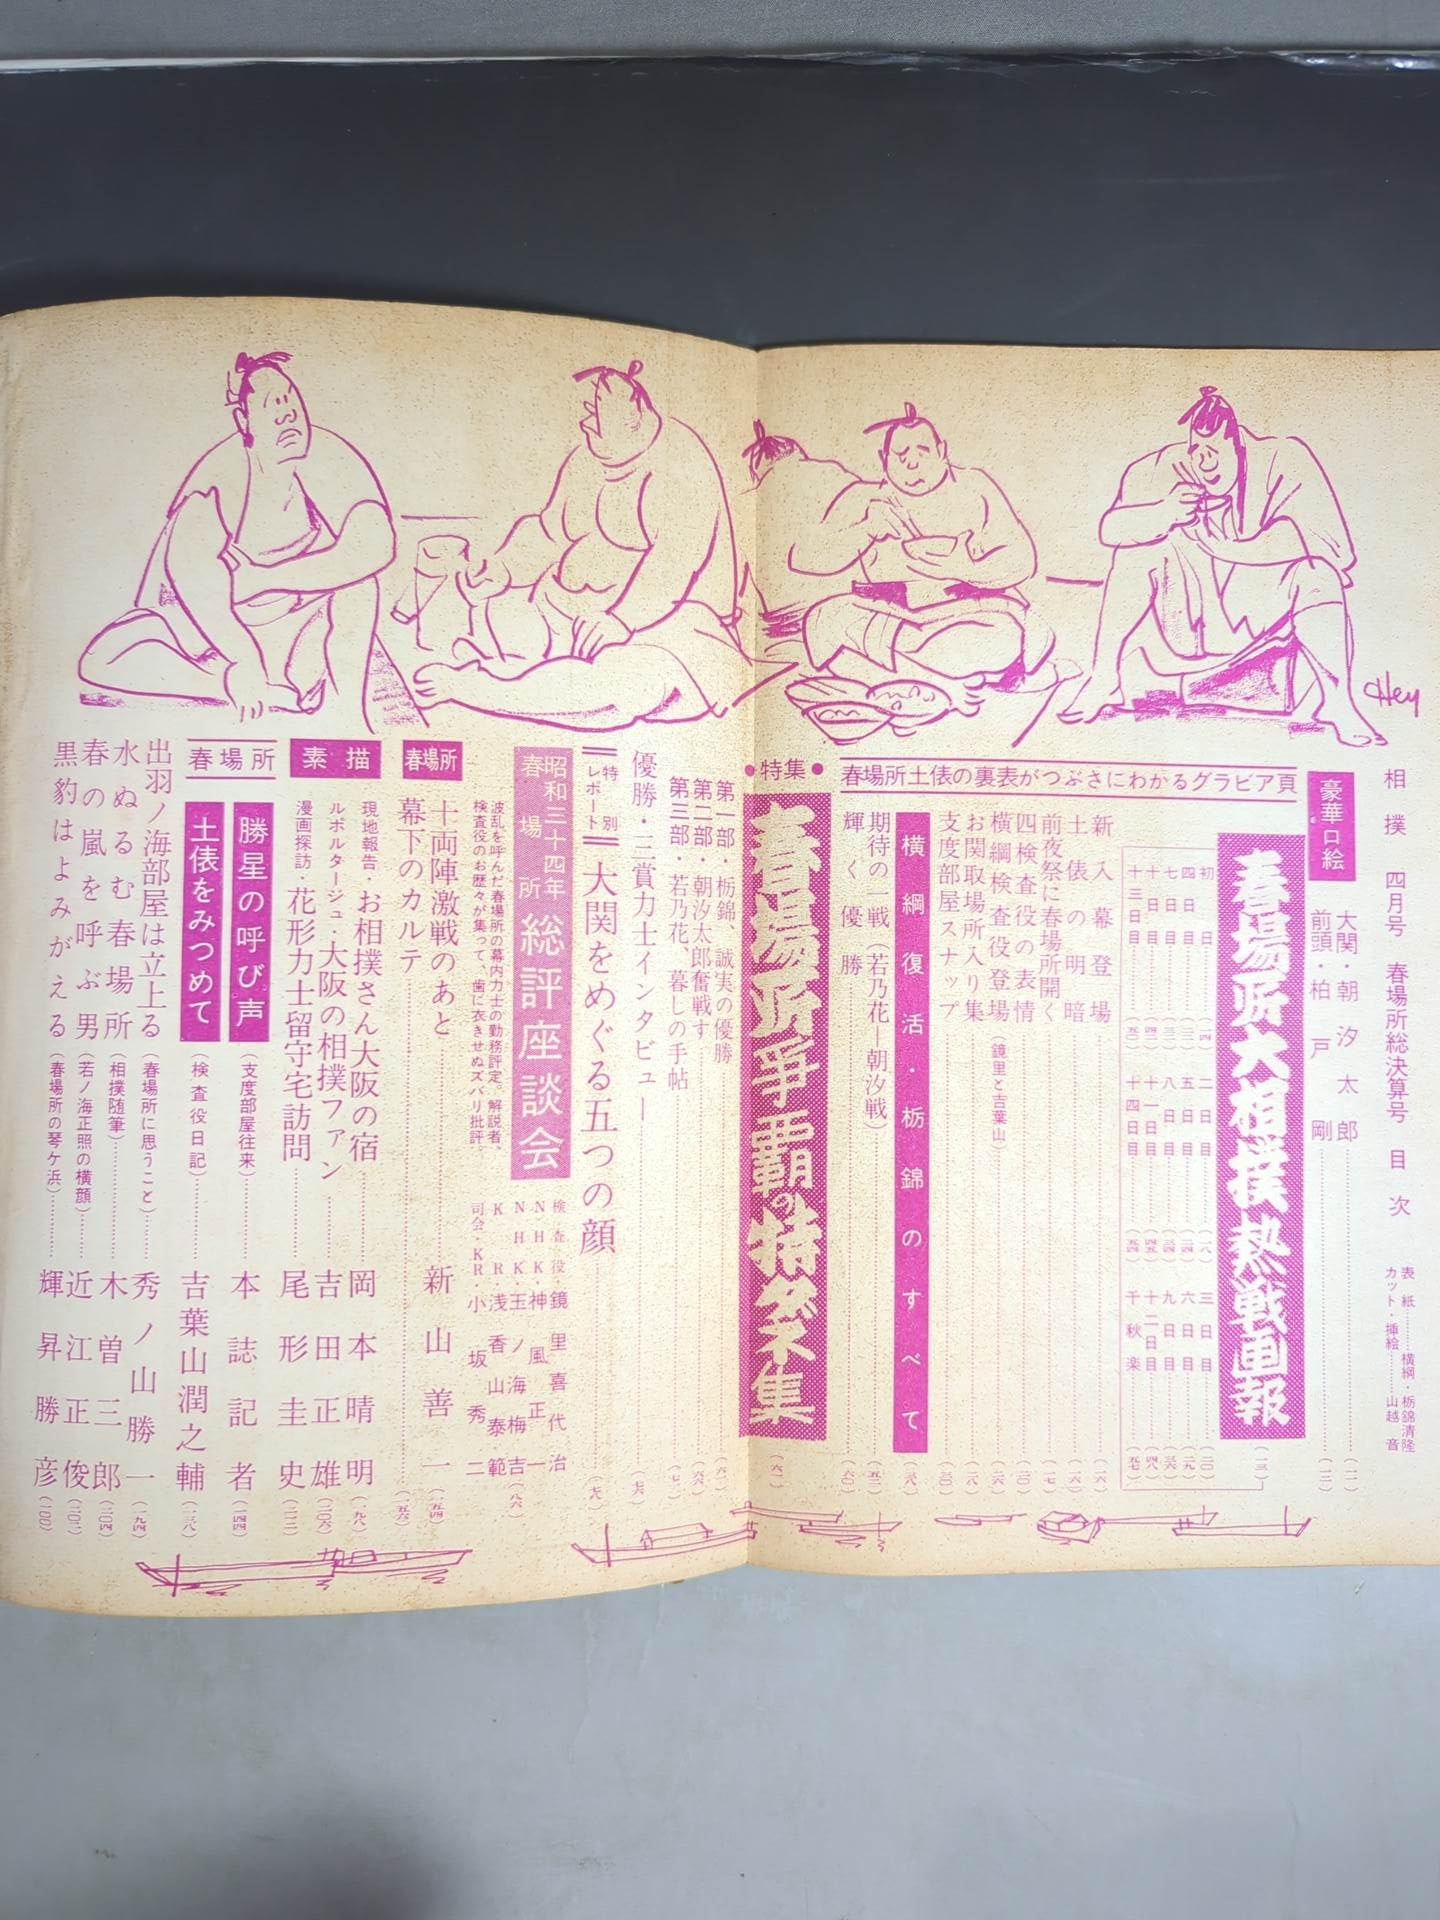 相撲 四月号 春場所総決算号 目次
表紙………横綱・栃錦清隆
カット・挿絵……山越 音
豪華口絵
大関・朝汐太郎
前頭・柏戸剛
春場所大相撲熱戦画報
初日
二日目
三日目
四日目
五日目
六日目
七日目
八日目
九日目
十日目
十一日目
十二日目
十三日目
十四日目
千秋楽
春場所土俵の裏表がつぶさにわかるグラビア頁
新入幕登場
土俵の明暗
前夜祭に春場所開く
四検査役の表情
横綱検査役登場(鏡里と吉葉山)
お関取場所入り集
支度部屋スナップ
横綱復活・栃錦のすべて
期待の一戦(若乃花―朝汐戦)
輝く優勝
●特集●
春場所争覇の特ダネ集
第一部・栃錦、誠実の優勝
第二部・朝汐太郎奮戦す
第三部・若乃花、暮しの手帖
優勝・三賞力士インタビュー
特別レポート
大関をめぐる五つの顔
昭和三十四年春場所 総評座談会
検査役・鏡里喜代治
NHK・神風正一
NHK・玉ノ海梅吉
KR・浅香山泰範
司会・KR・小坂秀二
波乱を呼んだ春場所の幕内力士の勤務評定。解説者、
検査役のお歴々が集って、歯に衣きせぬズバリ批評。
春場所
十両陣激戦のあと 新山善一
幕下のカルテ
素描
現地報告・お相撲さん大阪の宿 岡本晴明
ルポルタージュ・大阪の相撲ファン 吉田正雄
漫画探訪・花形力士留守宅訪問 尾形圭史
春場所
勝星の呼び声(支度部屋往来) 本誌記者
土俵をみつめて(検査役日記) 吉葉山潤之輔
出羽ノ海部屋は立上る(春場所に思うこと) 秀ノ山勝一
水ぬるむ春場所(相撲随筆) 木曽三郎
春の嵐を呼ぶ男(若ノ海正照の横顔) 近江正俊
黒豹はよみがえる(春場所の琴ケ浜) 輝昇勝彦
Hey